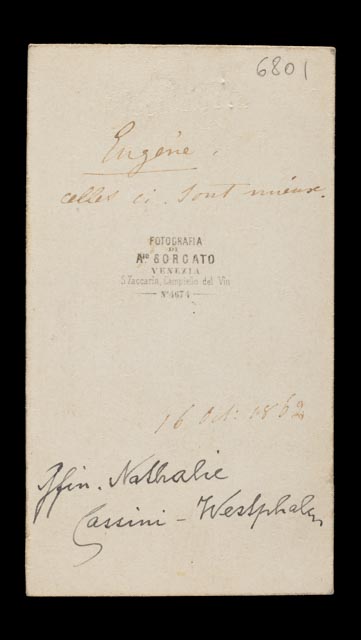 6801
Eugène.
celles ci sont mieux.
FOTOGRAFIA
DI
Ano SORGATO
VENEZIA
S. Zaccaria, Campiello del Vin
No. 4674
16 Oct. 1862
Gfin. Nathalie
Cassini - Westphalen